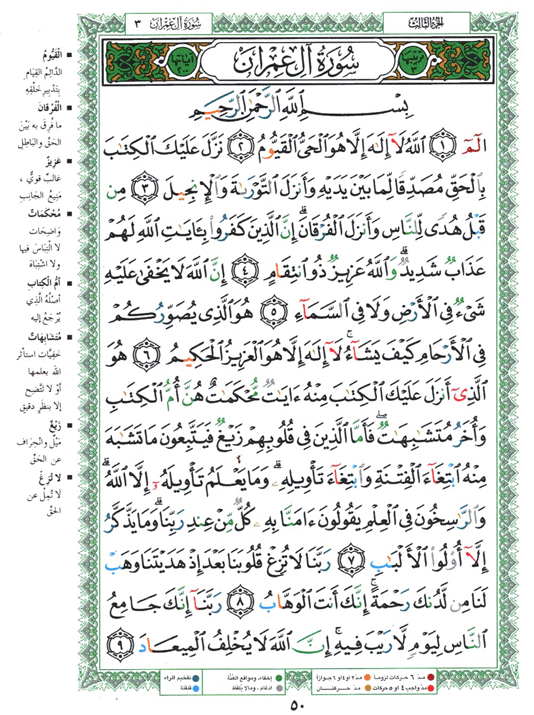 الجزء الثالث
سورة آل عمران ٣
ترتيبها ٣
سُورَةُ آلِ عِمْرَان
آياتها ٢٠٠
بِسْمِ اللَّهِ الرَّحْمَٰنِ الرَّحِيمِ
الٓمٓ ١ ٱللَّهُ لَآ إِلَٰهَ إِلَّا هُوَ ٱلْحَىُّ ٱلْقَيُّومُ ٢ نَزَّلَ عَلَيْكَ ٱلْكِتَٰبَ
بِٱلْحَقِّ مُصَدِّقًا لِّمَا بَيْنَ يَدَيْهِ وَأَنزَلَ ٱلتَّوْرَىٰةَ وَٱلْإِنجِيلَ ٣ مِن
قَبْلُ هُدًى لِّلنَّاسِ وَأَنزَلَ ٱلْفُرْقَانَ ۗ إِنَّ ٱلَّذِينَ كَفَرُوا۟ بِـَٔايَٰتِ ٱللَّهِ لَهُمْ
عَذَابٌ شَدِيدٌ ۗ وَٱللَّهُ عَزِيزٌ ذُو ٱنتِقَامٍ ٤ إِنَّ ٱللَّهَ لَا يَخْفَىٰ عَلَيْهِ
شَىْءٌ فِى ٱلْأَرْضِ وَلَا فِى ٱلسَّمَآءِ ٥ هُوَ ٱلَّذِى يُصَوِّرُكُمْ
فِى ٱلْأَرْحَامِ كَيْفَ يَشَآءُ ۚ لَآ إِلَٰهَ إِلَّا هُوَ ٱلْعَزِيزُ ٱلْحَكِيمُ ٦ هُوَ
ٱلَّذِىٓ أَنزَلَ عَلَيْكَ ٱلْكِتَٰبَ مِنْهُ ءَايَٰتٌ مُّحْكَمَٰتٌ هُنَّ أُمُّ ٱلْكِتَٰبِ
وَأُخَرُ مُتَشَٰبِهَٰتٌ ۖ فَأَمَّا ٱلَّذِينَ فِى قُلُوبِهِمْ زَيْغٌ فَيَتَّبِعُونَ مَا تَشَٰبَهَ
مِنْهُ ٱبْتِغَآءَ ٱلْفِتْنَةِ وَٱبْتِغَآءَ تَأْوِيلِهِۦ ۗ وَمَا يَعْلَمُ تَأْوِيلَهُۥٓ إِلَّا ٱللَّهُ ۗ
وَٱلرَّٰسِخُونَ فِى ٱلْعِلْمِ يَقُولُونَ ءَامَنَّا بِهِۦ كُلٌّ مِّنْ عِندِ رَبِّنَا ۗ وَمَا يَذَّكَّرُ
إِلَّآ أُو۟لُوا۟ ٱلْأَلْبَٰبِ ٧ رَبَّنَا لَا تُزِغْ قُلُوبَنَا بَعْدَ إِذْ هَدَيْتَنَا وَهَبْ
لَنَا مِن لَّدُنكَ رَحْمَةً ۚ إِنَّكَ أَنتَ ٱلْوَهَّابُ ٨ رَبَّنَآ إِنَّكَ جَامِعُ
ٱلنَّاسِ لِيَوْمٍ لَّا رَيْبَ فِيهِ ۚ إِنَّ ٱللَّهَ لَا يُخْلِفُ ٱلْمِيعَادَ ٩
■ الْقَيُّومُ
الدّائِمُ القِيامِ
بِتَدبيرِ خَلْقِهِ
■ الْفُرْقَانَ
ما فُرِقَ به بَيْنَ
الحَقِّ والبَاطِلِ
■ عَزِيزٌ
غالبٌ قويٌّ ،
مَنِيعُ الجانِبِ
■ مُحْكَمَاتٌ
وَاضِحَات
لا الْتِبَاسَ فيها
ولا اشْتِبَاهَ
■ أُمُّ الْكِتَابِ
أَصْلُهُ الَّذِي
يُرْجَعُ إليه
■ مُتَشَابِهَاتٌ
خَفِيَّات استأثر
الله بعلمها
أوْ لا تَتَّضِح
إلا بنظرٍ دقيق
■ زَيْغٌ
مَيْلٌ وانْحِرَاف
عن الحَقِّ
■ لا تُزِغْ
لا تُمِلْ عن
الحَقِّ
مدّ ٦ حركات لزوماً
مدّ ٢ أو ٤ أو ٦ جوازاً
مدّ واجب ٤ أو ٥ حركات
مدّ حركتان
إخفاء، ومواقع الغُنَّة
ادغام، وما لا يُلفَظ
تفخيم الراء
قلقلة
٥٠